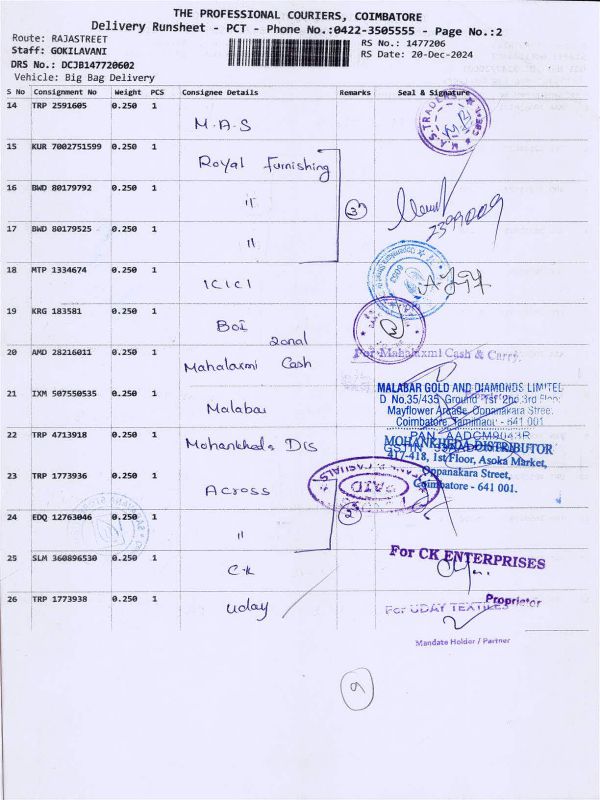 THE PROFESSIONAL COURIERS, COIMBATORE
Delivery Runsheet - PCT - Phone No.:0422-3505555 - Page No.:2
Route: RAJASTREET
RS No.: 1477206
Staff: GOKILAVANI
RS Date: 20-Dec-2024
DRS No.: DCJB147720602
Vehicle: Big Bag Delivery
S No Consignment No Weight PCS Consignee Details Remarks Seal & Signature
14 TRP 2591605 0.250 1 M.A.S
15 KUR 7002751599 0.250 1 Royal Furnishing
16 BWD 80179792 0.250 1 "
3
17 BWD 80179525 0.250 1 "
18 MTP 1334674 0.250 1 ICICI
19 KRG 183581 0.250 1 BOI
zonal
20 AMD 28216011 0.250 1 Mahalaxmi Cash
For Mahalaxmi Cash & Carry,
21 IXM 507550535 0.250 1 Malabar
MALABAR GOLD AND DIAMONDS LIMITED
D No.35/435, Ground, 1st, 2nd, 3rd Floor
Mayflower Arcade, Oppanakara Street
Coimbatore, Tamilnadu - 641 001
PAN AADCM9043R
22 TRP 4713918 0.250 1 Mohankheda Dis
MOHANKHEDA DISTRIBUTOR
417-418, 1st Floor, Asoka Market,
Oppanakara Street,
Coimbatore - 641 001.
23 TRP 1773936 0.250 1 Across
PAID
24 EDQ 12763046 0.250 1 "
2
25 SLM 360896530 0.250 1 CK
For CK ENTERPRISES
Proprietor
26 TRP 1773938 0.250 1 uday
For UDAY TEXTILES
Mandate Holder / Partner
9